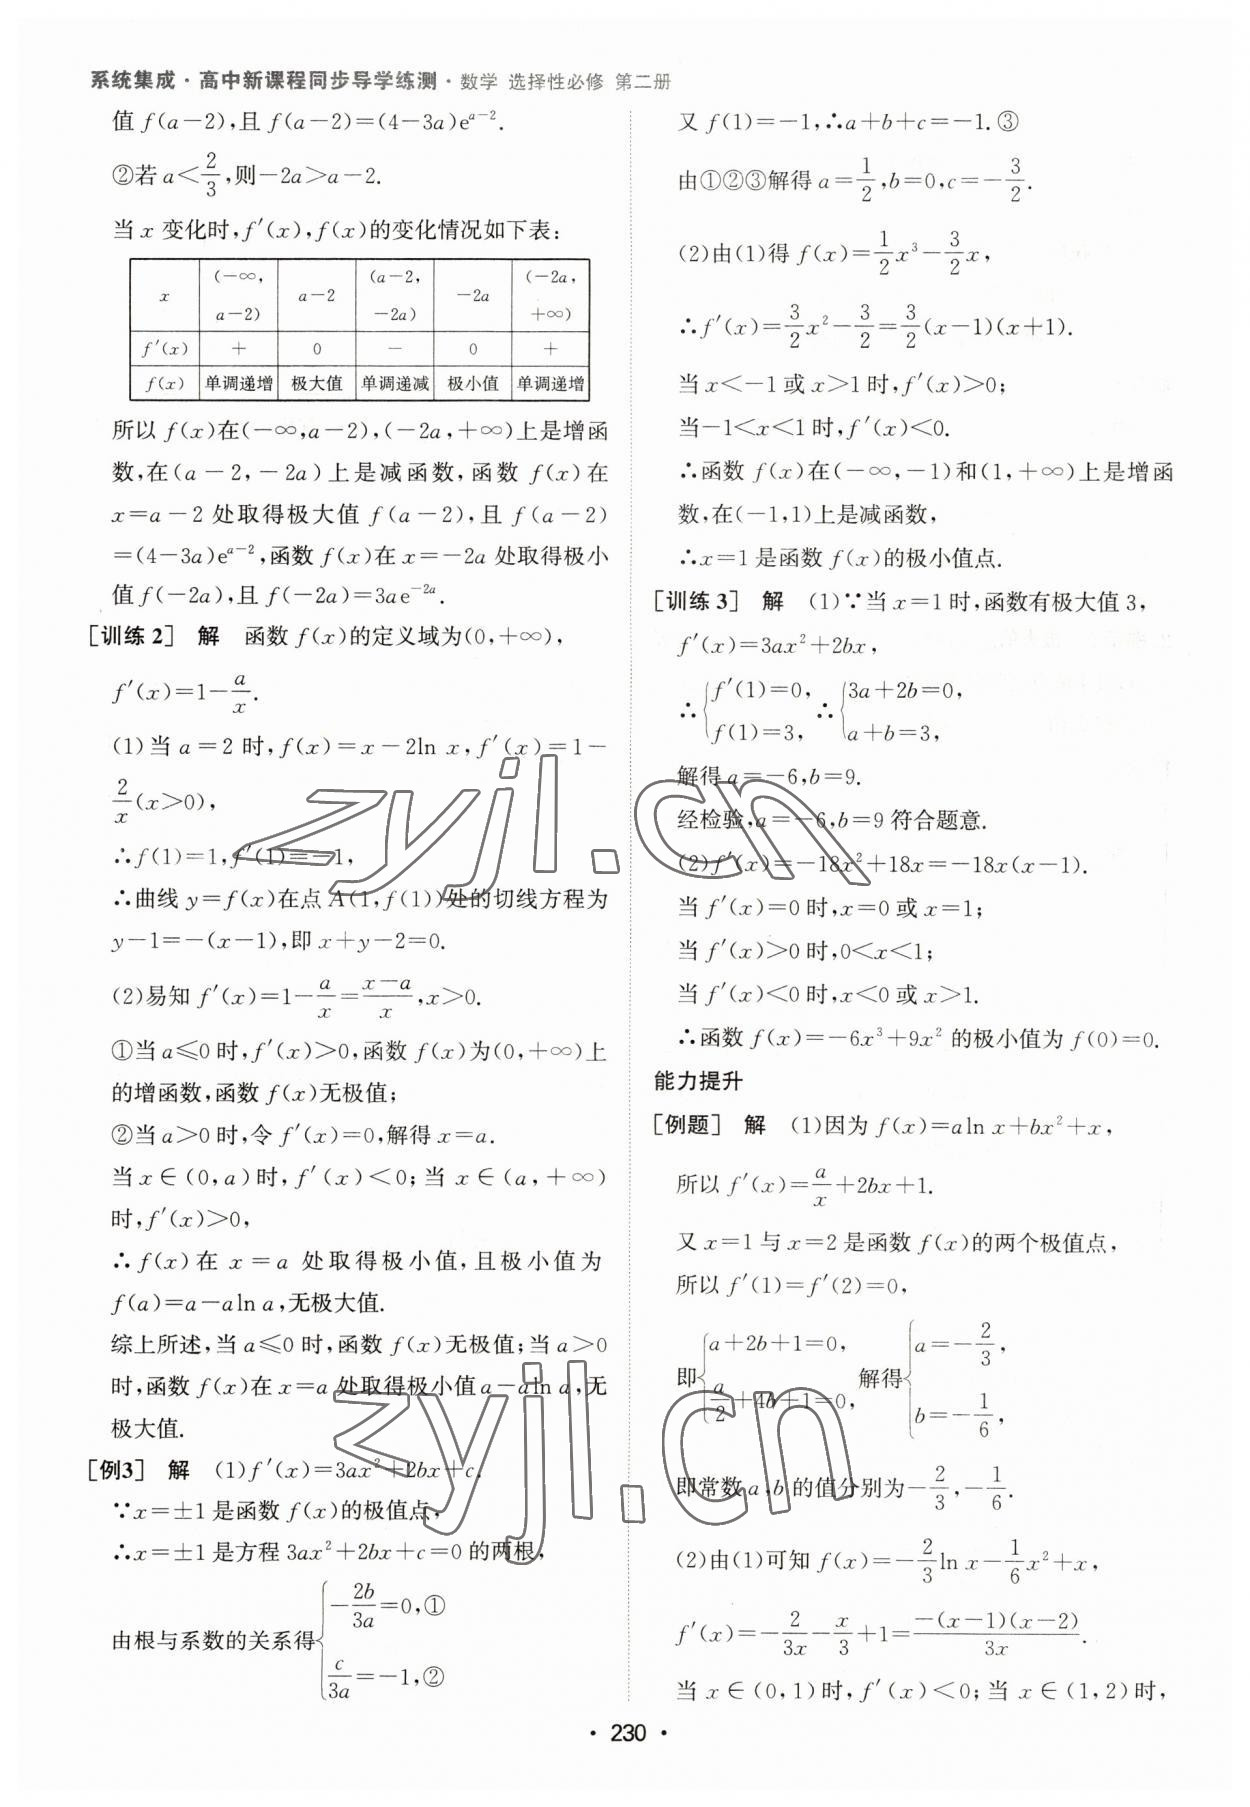 系统集成·高中新课程同步导学练测·数学 选择性必修 第二册
值 f(a-2),且 f(a-2)=(4-3a)e^{a-2}.
②若 a<2/3,则-2a>a-2.
当 x 变化时,f′(x),f(x)的变化情况如下表:
x (-∞,a-2) a-2 (a-2,-2a) -2a (-2a,+∞)
f′(x) + 0 - 0 +
f(x) 单调递增 极大值 单调递减 极小值 单调递增
所以 f(x)在(-∞,a-2),(-2a,+∞)上是增函
数,在(a-2,-2a)上是减函数,函数 f(x)在
x=a-2 处取得极大值 f(a-2),且 f(a-2)
=(4-3a)e^{a-2},函数 f(x)在 x=-2a 处取得极小
值 f(-2a),且 f(-2a)=3ae^{-2a}.
[训练2] 解 函数 f(x)的定义域为(0,+∞),
f′(x)=1-a/x.
(1)当 a=2 时,f(x)=x-2ln x,f′(x)=1-
2/x(x>0),
∴f(1)=1,f′(1)=-1,
∴曲线 y=f(x)在点 A(1,f(1))处的切线方程为
y-1=-(x-1),即 x+y-2=0.
(2)易知 f′(x)=1-a/x=(x-a)/x,x>0.
①当 a≤0 时,f′(x)>0,函数 f(x)为(0,+∞)上
的增函数,函数 f(x)无极值;
②当 a>0 时,令 f′(x)=0,解得 x=a.
当 x∈(0,a)时,f′(x)<0;当 x∈(a,+∞)
时,f′(x)>0,
∴f(x)在 x=a 处取得极小值,且极小值为
f(a)=a-aln a,无极大值.
综上所述,当 a≤0 时,函数 f(x)无极值;当 a>0
时,函数 f(x)在 x=a 处取得极小值 a-aln a,无
极大值.
[例3] 解 (1)f′(x)=3ax²+2bx+c.
∵x=±1 是函数 f(x)的极值点,
∴x=±1 是方程 3ax²+2bx+c=0 的两根,
由根与系数的关系得{-2b/3a=0,①
c/3a=-1,②
又 f(1)=-1,∴a+b+c=-1.③
由①②③解得 a=1/2,b=0,c=-3/2.
(2)由(1)得 f(x)=1/2x³-3/2x,
∴f′(x)=3/2x²-3/2=3/2(x-1)(x+1).
当 x<-1 或 x>1 时,f′(x)>0;
当-1<x<1 时,f′(x)<0.
∴函数 f(x)在(-∞,-1)和(1,+∞)上是增函
数,在(-1,1)上是减函数,
∴x=1 是函数 f(x)的极小值点.
[训练3] 解 (1)∵当 x=1 时,函数有极大值 3,
f′(x)=3ax²+2bx,
∴{f′(1)=0, f(1)=3, ∴{3a+2b=0, a+b=3,
解得 a=-6,b=9.
经检验,a=-6,b=9 符合题意.
(2)f′(x)=-18x²+18x=-18x(x-1).
当 f′(x)=0 时,x=0 或 x=1;
当 f′(x)>0 时,0<x<1;
当 f′(x)<0 时,x<0 或 x>1.
∴函数 f(x)=-6x³+9x² 的极小值为 f(0)=0.
能力提升
[例题] 解 (1)因为 f(x)=aln x+bx²+x,
所以 f′(x)=a/x+2bx+1.
又 x=1 与 x=2 是函数 f(x)的两个极值点,
所以 f′(1)=f′(2)=0,
即{a+2b+1=0, a/2+4b+1=0, 解得{a=-2/3, b=-1/6,
即常数 a,b 的值分别为-2/3,-1/6.
(2)由(1)可知 f(x)=-2/3ln x-1/6x²+x,
f′(x)=-2/3x-x/3+1=-(x-1)(x-2)/3x.
当 x∈(0,1)时,f′(x)<0;当 x∈(1,2)时,
·230·
zyjl.cn
zyjl.cn